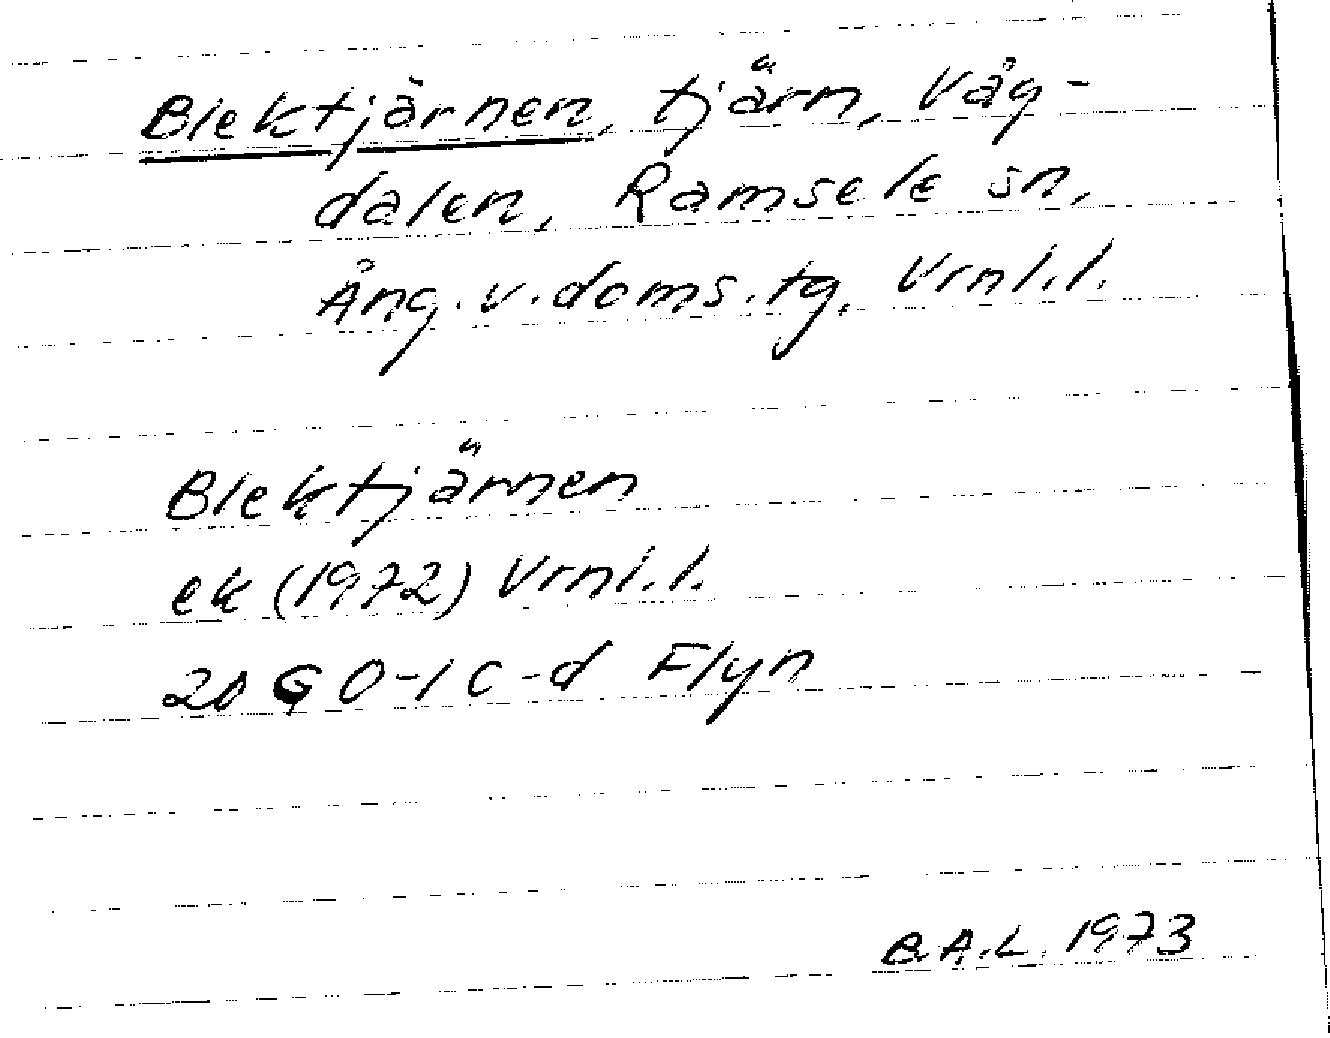 Blektjärnen, tjärn, Våg-
dalen, Ramsele sn,
Ång. v. doms. tg, Vrnl. l.
Blektjärnen
ek (1972) Vrnl. l.
20 G 0-1 c-d Flyn
B.A.L. 1973